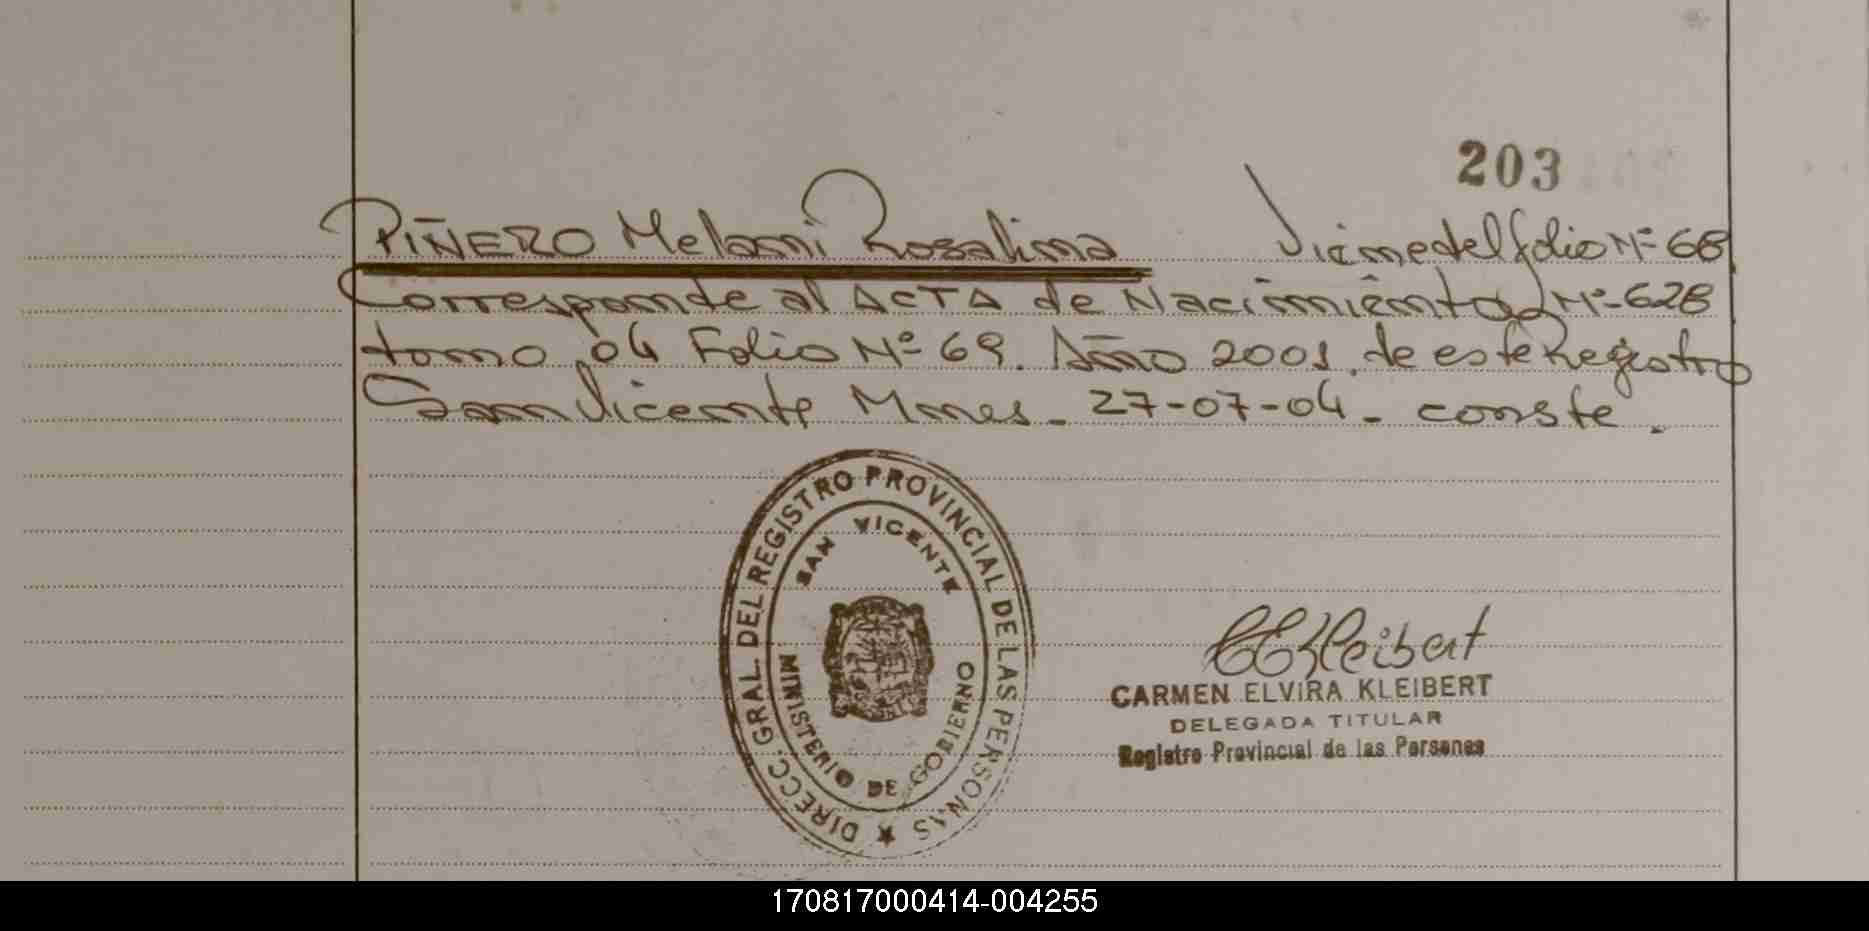 203
PIÑERO Melani Rosalina Viene del folio Nº 68
Corresponde al ACTA de Nacimiento Nº 628
tomo 04 Folio Nº 69. Año 2001. de este Registro
San Vicente Mnes - 27-07-04 - conste.
DIRECC. GRAL DEL REGISTRO PROVINCIAL DE LAS PERSONAS
SAN VICENTE
MINISTERIO DE GOBIERNO
CEKleibert
CARMEN ELVIRA KLEIBERT
DELEGADA TITULAR
Registro Provincial de las Personas
170817000414-004255